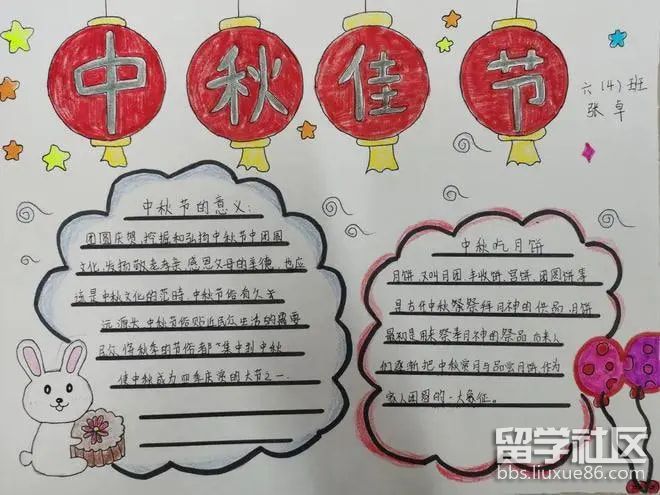 中秋佳节
六(4)班
张卓
中秋节的意义:
团圆庆贺,挖掘和弘扬中秋节中团圆
文化,发扬敬老孝亲,感恩父母的美德,也应
该是中秋文化的范畴,中秋节俗有久
远源头,中秋节俗贴近民众生活的需要
民众将秋季的节俗都"集中到中秋
使中秋成为四季庆赏的大节之一.
中秋吃月饼
月饼,又叫月团、丰收饼、宫饼、团圆饼等
是古代中秋祭拜月神的供品.月饼
最初是用来祭奉月神的祭品,后来人
们逐渐把中秋赏月与品尝月饼,作为
家人团圆的一大象征。
留学社区
bbs.liuxue86.com